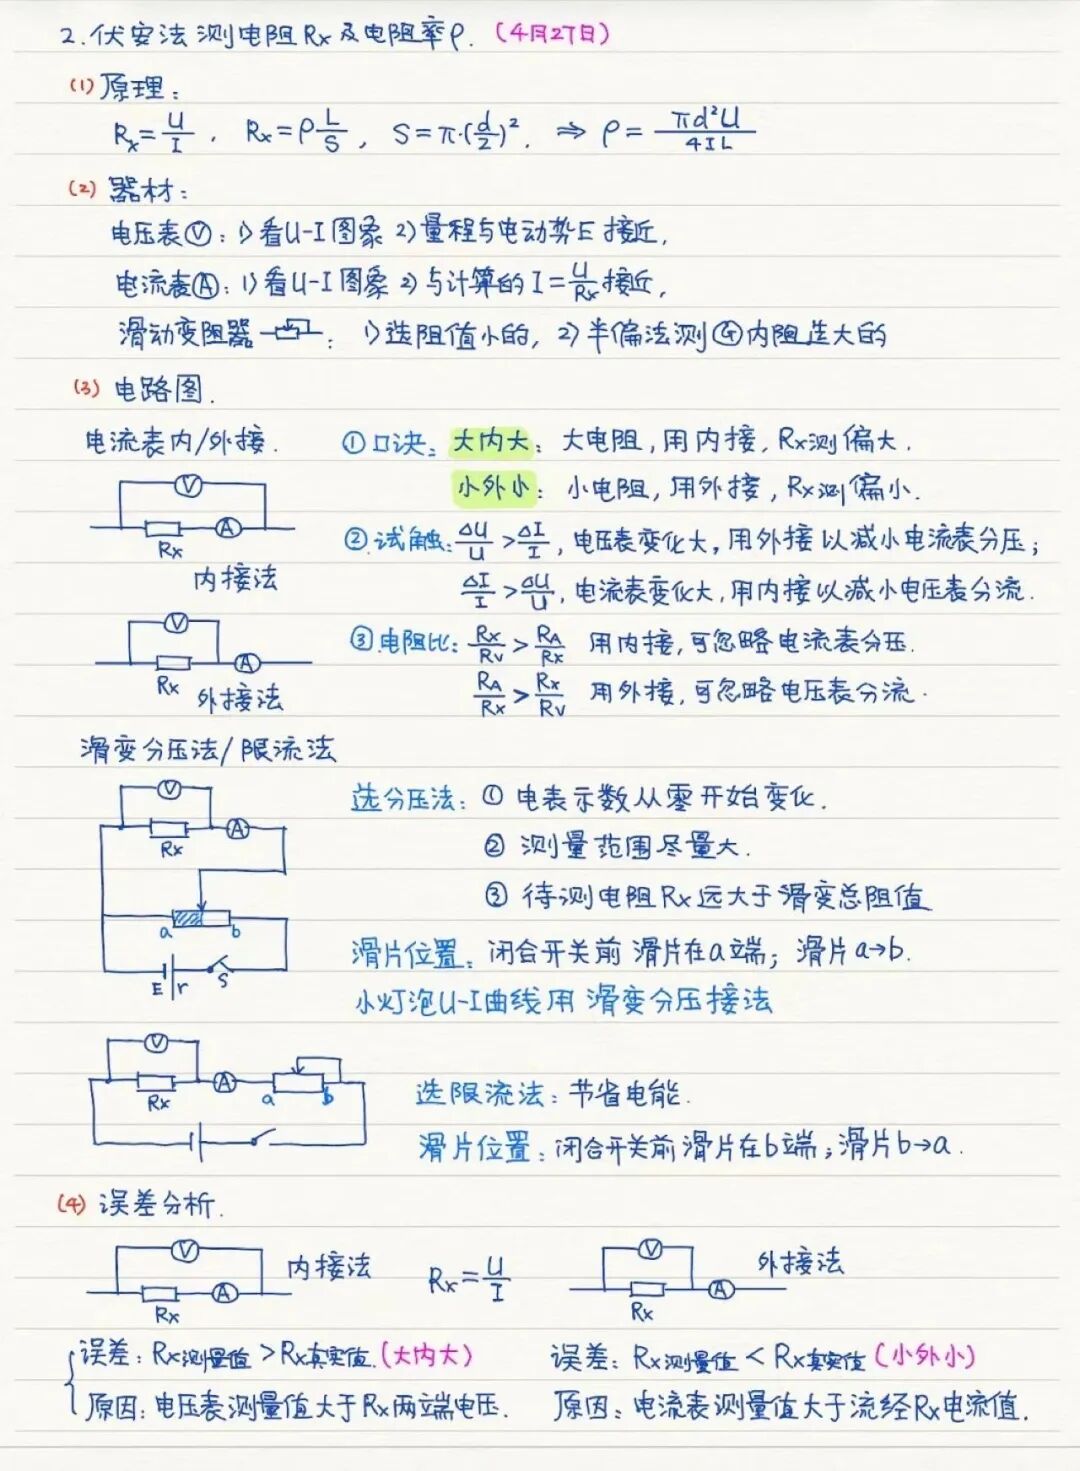 2.伏安法测电阻Rx及电阻率ρ.(4月27日)
(1)原理:
Rx=U/I, Rx=ρL/S, S=π·(d/2)², ⇒ ρ=πd²U/4IL
(2)器材:
电压表Ⓥ:1)看U-I图象 2)量程与电动势E接近,
电流表Ⓐ:1)看U-I图象 2)与计算的I=U/Rx接近,
滑动变阻器 : 1)选阻值小的, 2)半偏法测Ⓖ内阻选大的
(3)电路图.
电流表内/外接.
①口诀:大内大:大电阻,用内接,Rx测偏大.
小外小:小电阻,用外接,Rx测偏小.
V
Rx A
内接法
②试触:ΔU/U>ΔI/I,电压表变化大,用外接以减小电流表分压;
ΔI/I>ΔU/U,电流表变化大,用内接以减小电压表分流.
V
Rx A
外接法
③电阻比:Rx/Rv>RA/Rx 用内接,可忽略电流表分压.
RA/Rx>Rx/Rv 用外接,可忽略电压表分流.
滑变分压法/限流法
V
Rx A
a b
E r S
选分压法:①电表示数从零开始变化.
②测量范围尽量大.
③待测电阻Rx远大于滑变总阻值
滑片位置:闭合开关前滑片在a端;滑片a→b.
小灯泡U-I曲线用滑变分压接法
V
Rx A a b
选限流法:节省电能.
滑片位置:闭合开关前滑片在b端;滑片b→a.
(4)误差分析.
V
Rx A
内接法
Rx=U/I
V
Rx A
外接法
误差:Rx测量值>Rx真实值.(大内大)
原因:电压表测量值大于Rx两端电压.
误差:Rx测量值<Rx真实值(小外小)
原因:电流表测量值大于流经Rx电流值.